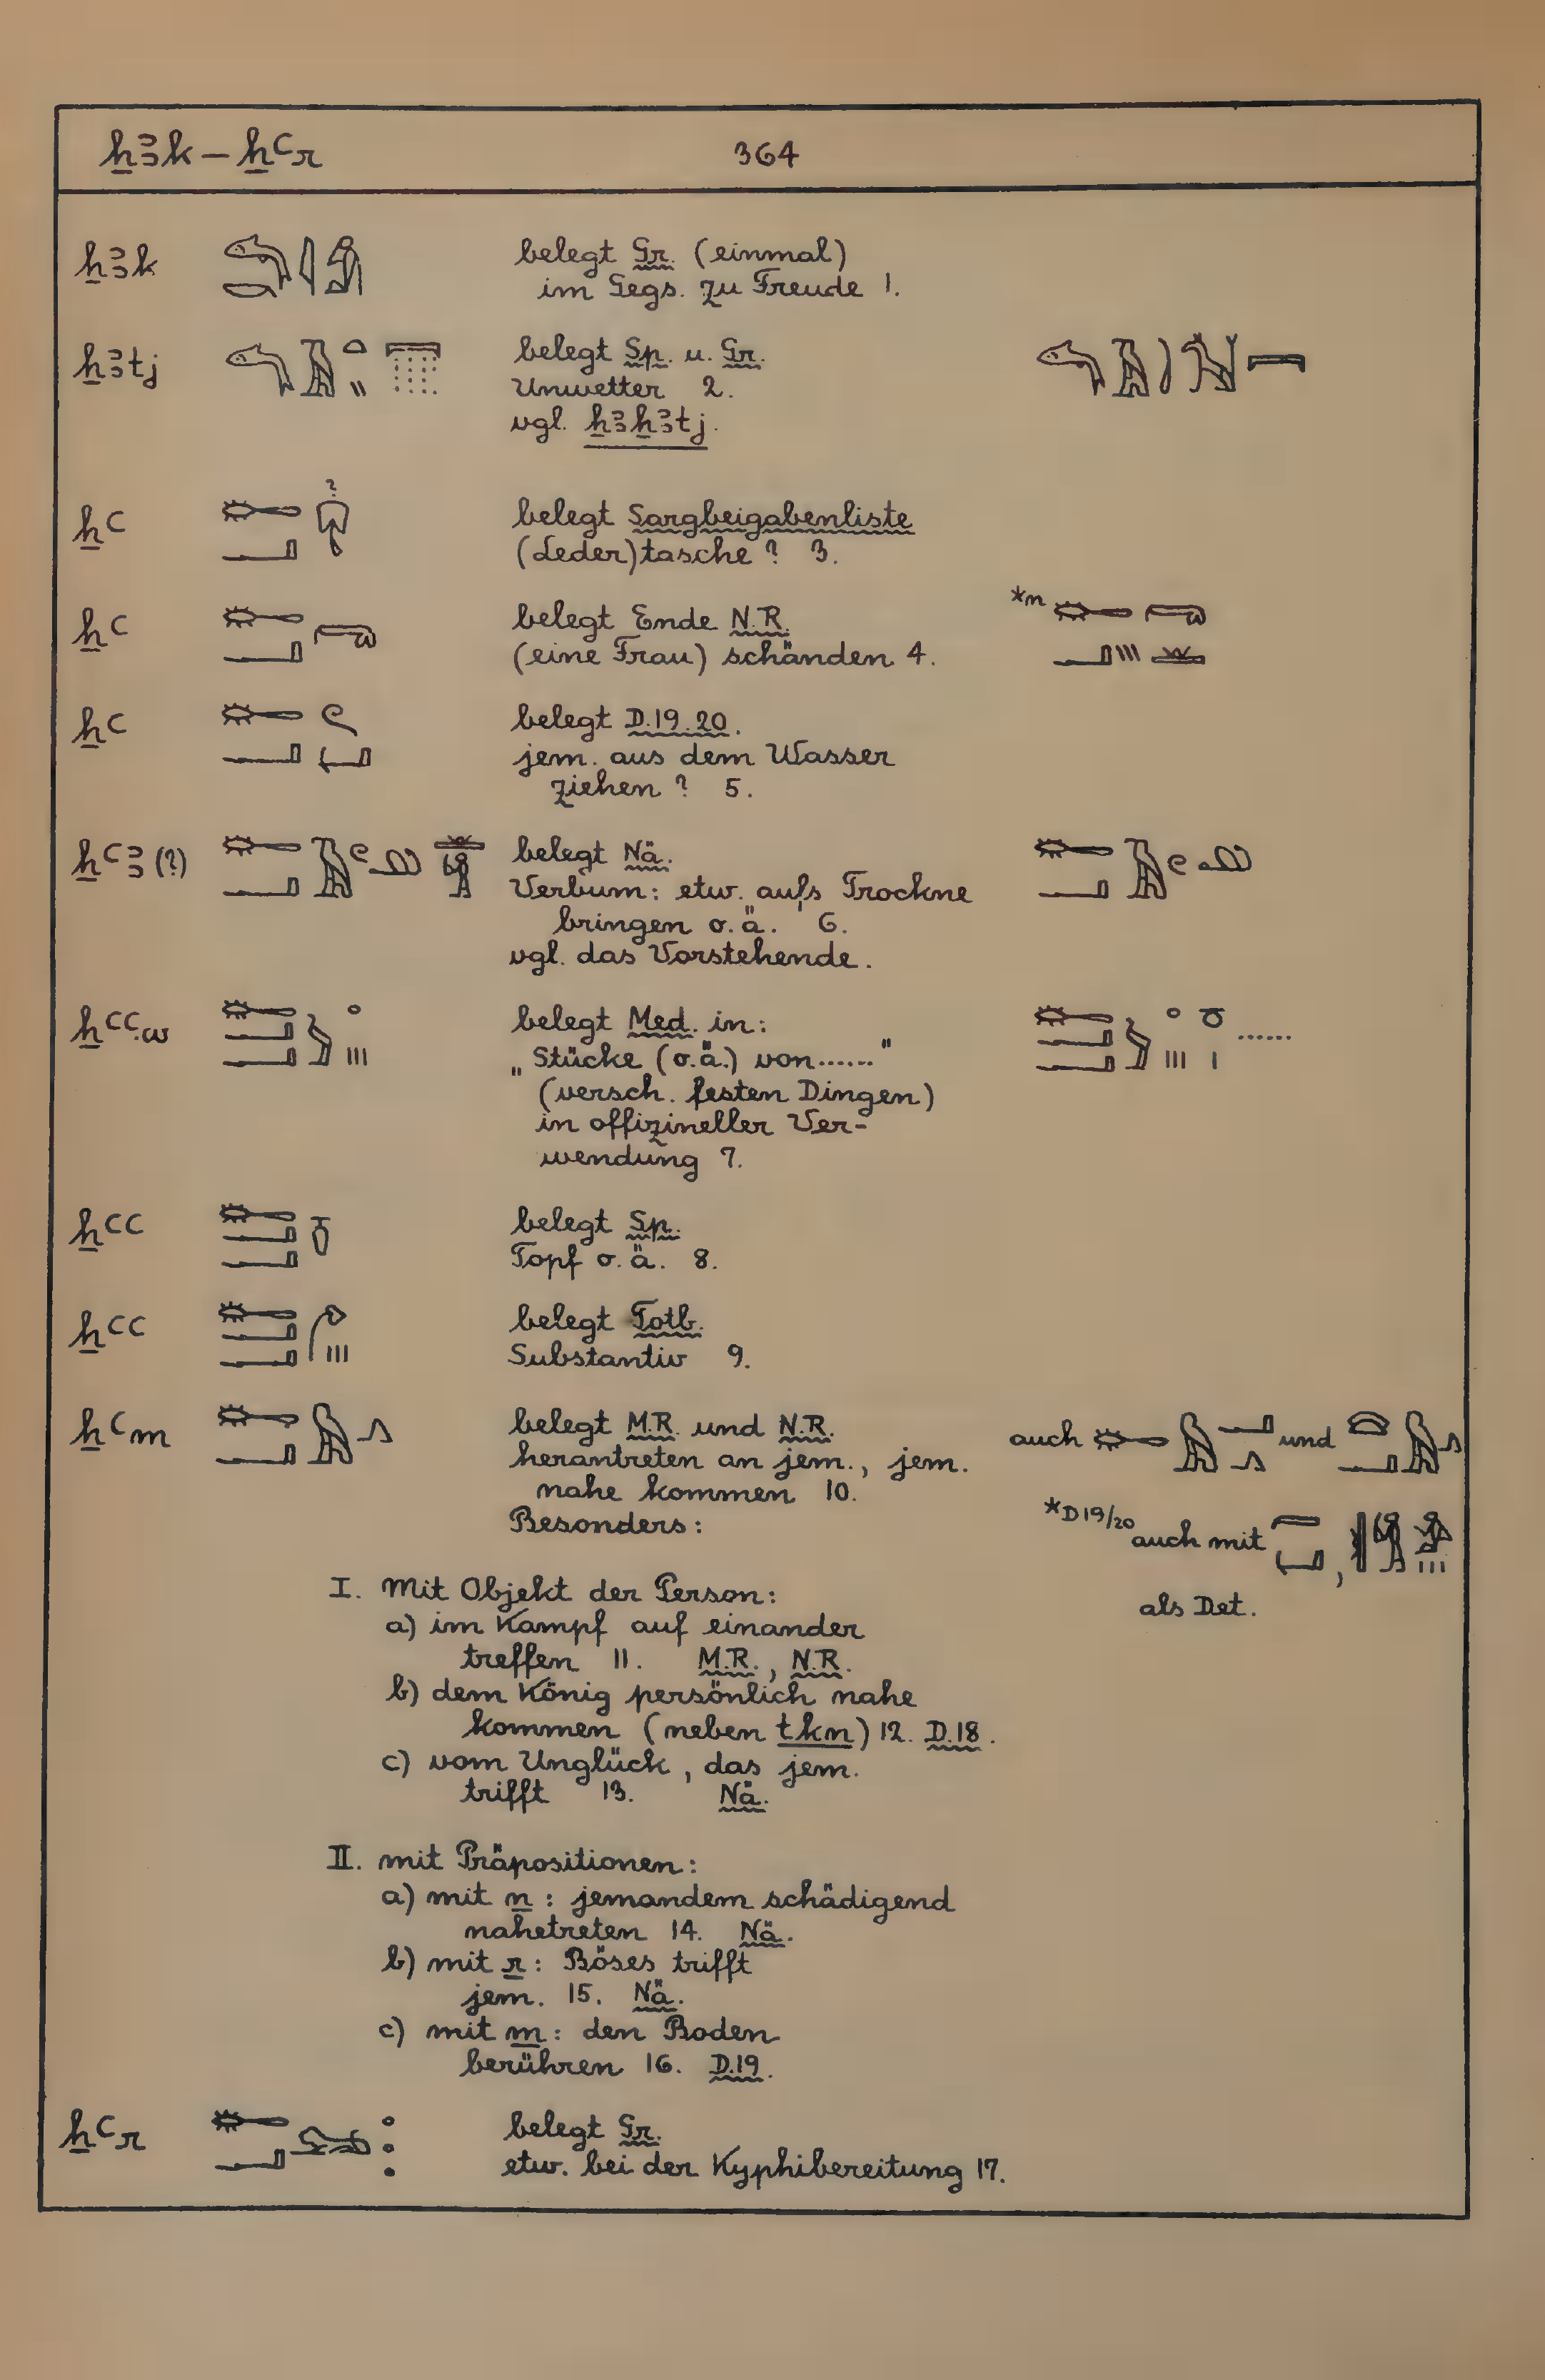 ẖꜣk – ẖꜥr 364
ẖꜣk belegt Gr. (einmal)
im Gegs. zu Freude 1.
ẖꜣtj belegt Sp. u. Gr.
Unwetter 2.
vgl. ẖꜣẖꜣtj.
ẖꜥ ? belegt Sargbeigabenliste
(Leder)tasche ? 3.
ẖꜥ belegt Ende N.R. *n
(eine Frau) schänden 4.
ẖꜥ belegt D.19.20.
jem. aus dem Wasser
ziehen ? 5.
ẖꜥꜣ (?) belegt Nä.
Verbum: etw. aufs Trockne
bringen o.ä. 6.
vgl. das Vorstehende.
ẖꜥꜥ.w belegt Med. in:
„Stücke (o.ä.) von......" ......
(versch. festen Dingen)
in offizineller Ver-
wendung 7.
ẖꜥꜥ belegt Sp.
Topf o.ä. 8.
ẖꜥꜥ belegt Totb.
Substantiv 9.
ẖꜥm belegt M.R. und N.R. auch und
herantreten an jem., jem.
nahe kommen 10.
Besonders: *D19/20 auch mit ,
als Det.
I. Mit Objekt der Person:
a) im Kampf auf einander
treffen 11. M.R., N.R.
b) dem König persönlich nahe
kommen (neben tkn) 12. D.18.
c) vom Unglück, das jem.
trifft 13. Nä.
II. mit Präpositionen:
a) mit n: jemandem schädigend
nahetreten 14. Nä.
b) mit r: Böses trifft
jem. 15. Nä.
c) mit m: den Boden
berühren 16. D.19.
ẖꜥr belegt Gr.
etw. bei der Kyphibereitung 17.